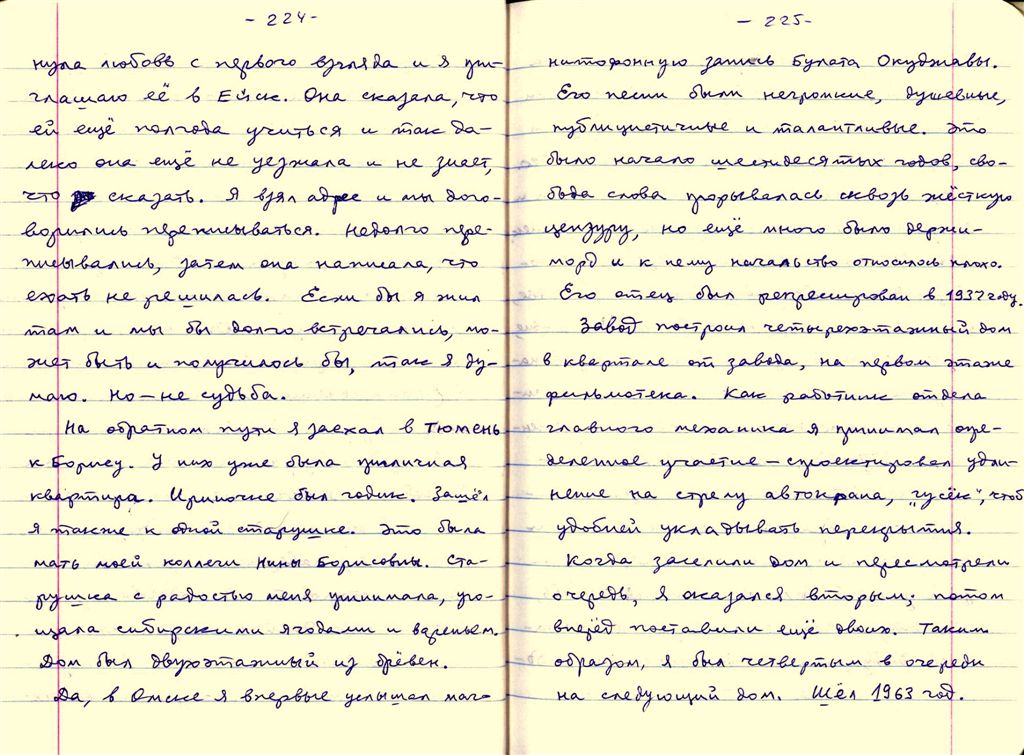 - 224 -
нула любовь с первого взгляда и я при-
глашаю её в Ейск. Она сказала, что
ей ещё полгода учиться и так да-
леко она ещё не уезжала и не знает,
что сказать. Я взял адрес и мы дого-
ворились переписываться. Недолго пере-
писывались, затем она написала, что
ехать не решилась. Если бы я жил
там и мы бы долго встречались, мо-
жет быть и получилось бы, так я ду-
маю. Но – не судьба.
На обратном пути я заехал в Тюмень
к Борису. У них уже была приличная
квартира. Ириночке был годик. Зашёл
я также к одной старушке. Это была
мать моей коллеги Нины Борисовны. Ста-
рушка с радостью меня принимала, уго-
щала сибирскими ягодами и вареньем.
Дом был двухэтажный из брёвен.
Да, в Омске я впервые услышал маг-
- 225 -
нитофонную запись Булата Окуджавы.
Его песни были негромкие, душевные,
публицистичные и талантливые. Это
было начало шестидесятых годов, сво-
бода слова прорывалась сквозь жёсткую
цензуру, но ещё много было держи-
морд и к нему начальство относилось плохо.
Его отец был репрессирован в 1937 году.
Завод построил четырехэтажный дом
в квартале от завода, на первом этаже
фильмотека. Как работник отдела
главного механика я принимал опре-
деленное участие – спроектировал удли-
нение на стрелу автокрана, "гусёк", чтоб
удобней укладывать перекрытия.
Когда заселили дом и пересмотрели
очередь, я оказался вторым; потом
вперёд поставили ещё двоих. Таким
образом, я был четвертым в очереди
на следующий дом. Шёл 1963 год.